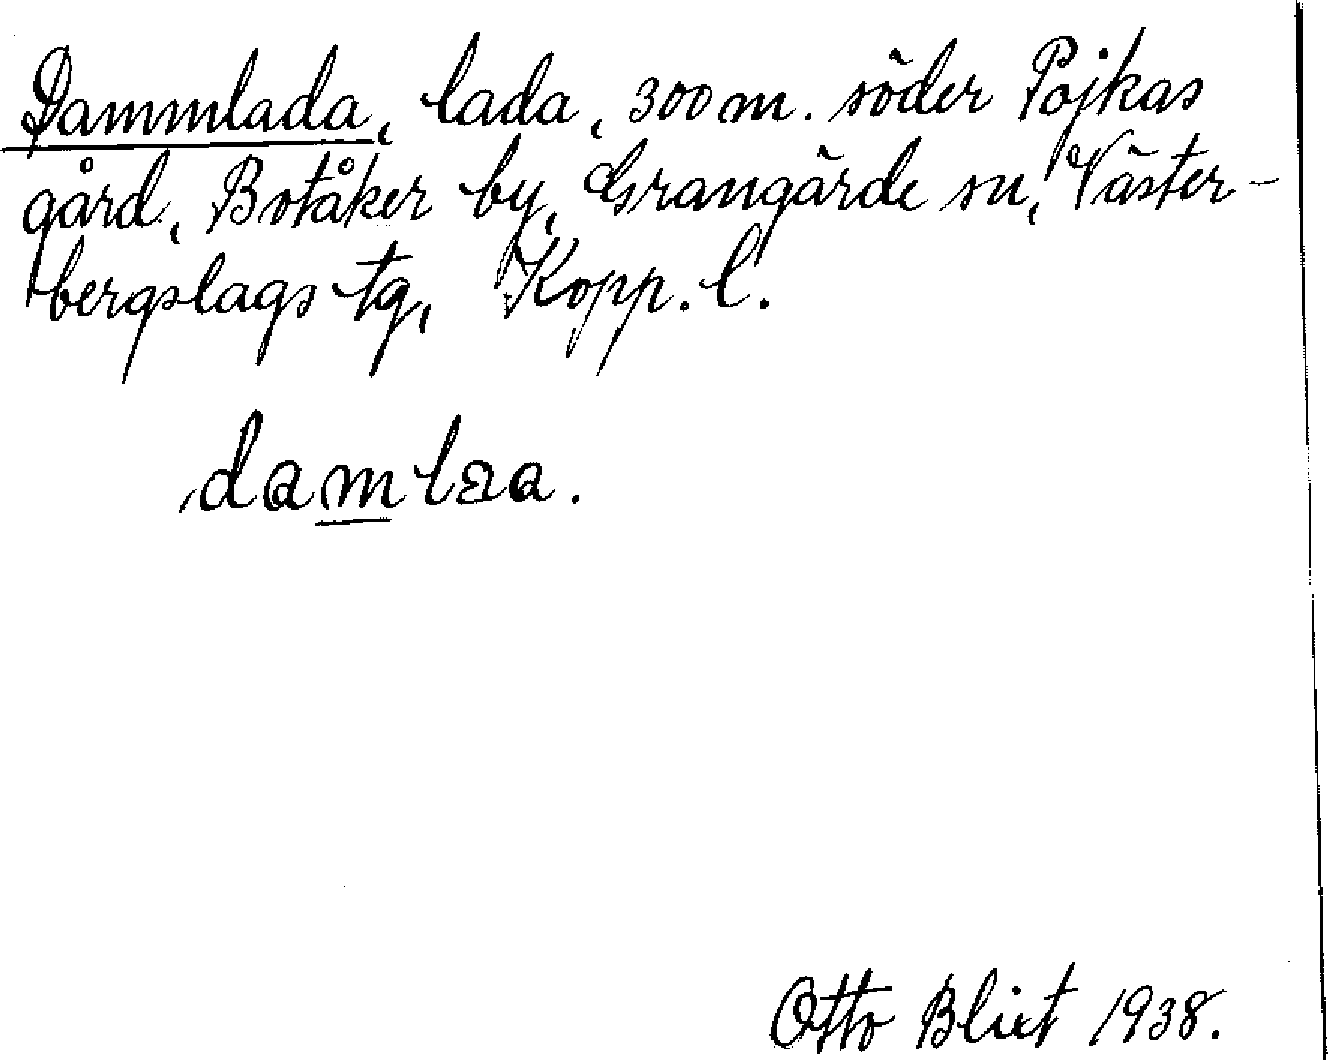 Dammlada, lada, 300 m. söder Pojkas
gård, Botåker by, Grangärde sn, Väster-
bergslags tg, Kopp. l.
damlaa.
Otto Blixt 1938.